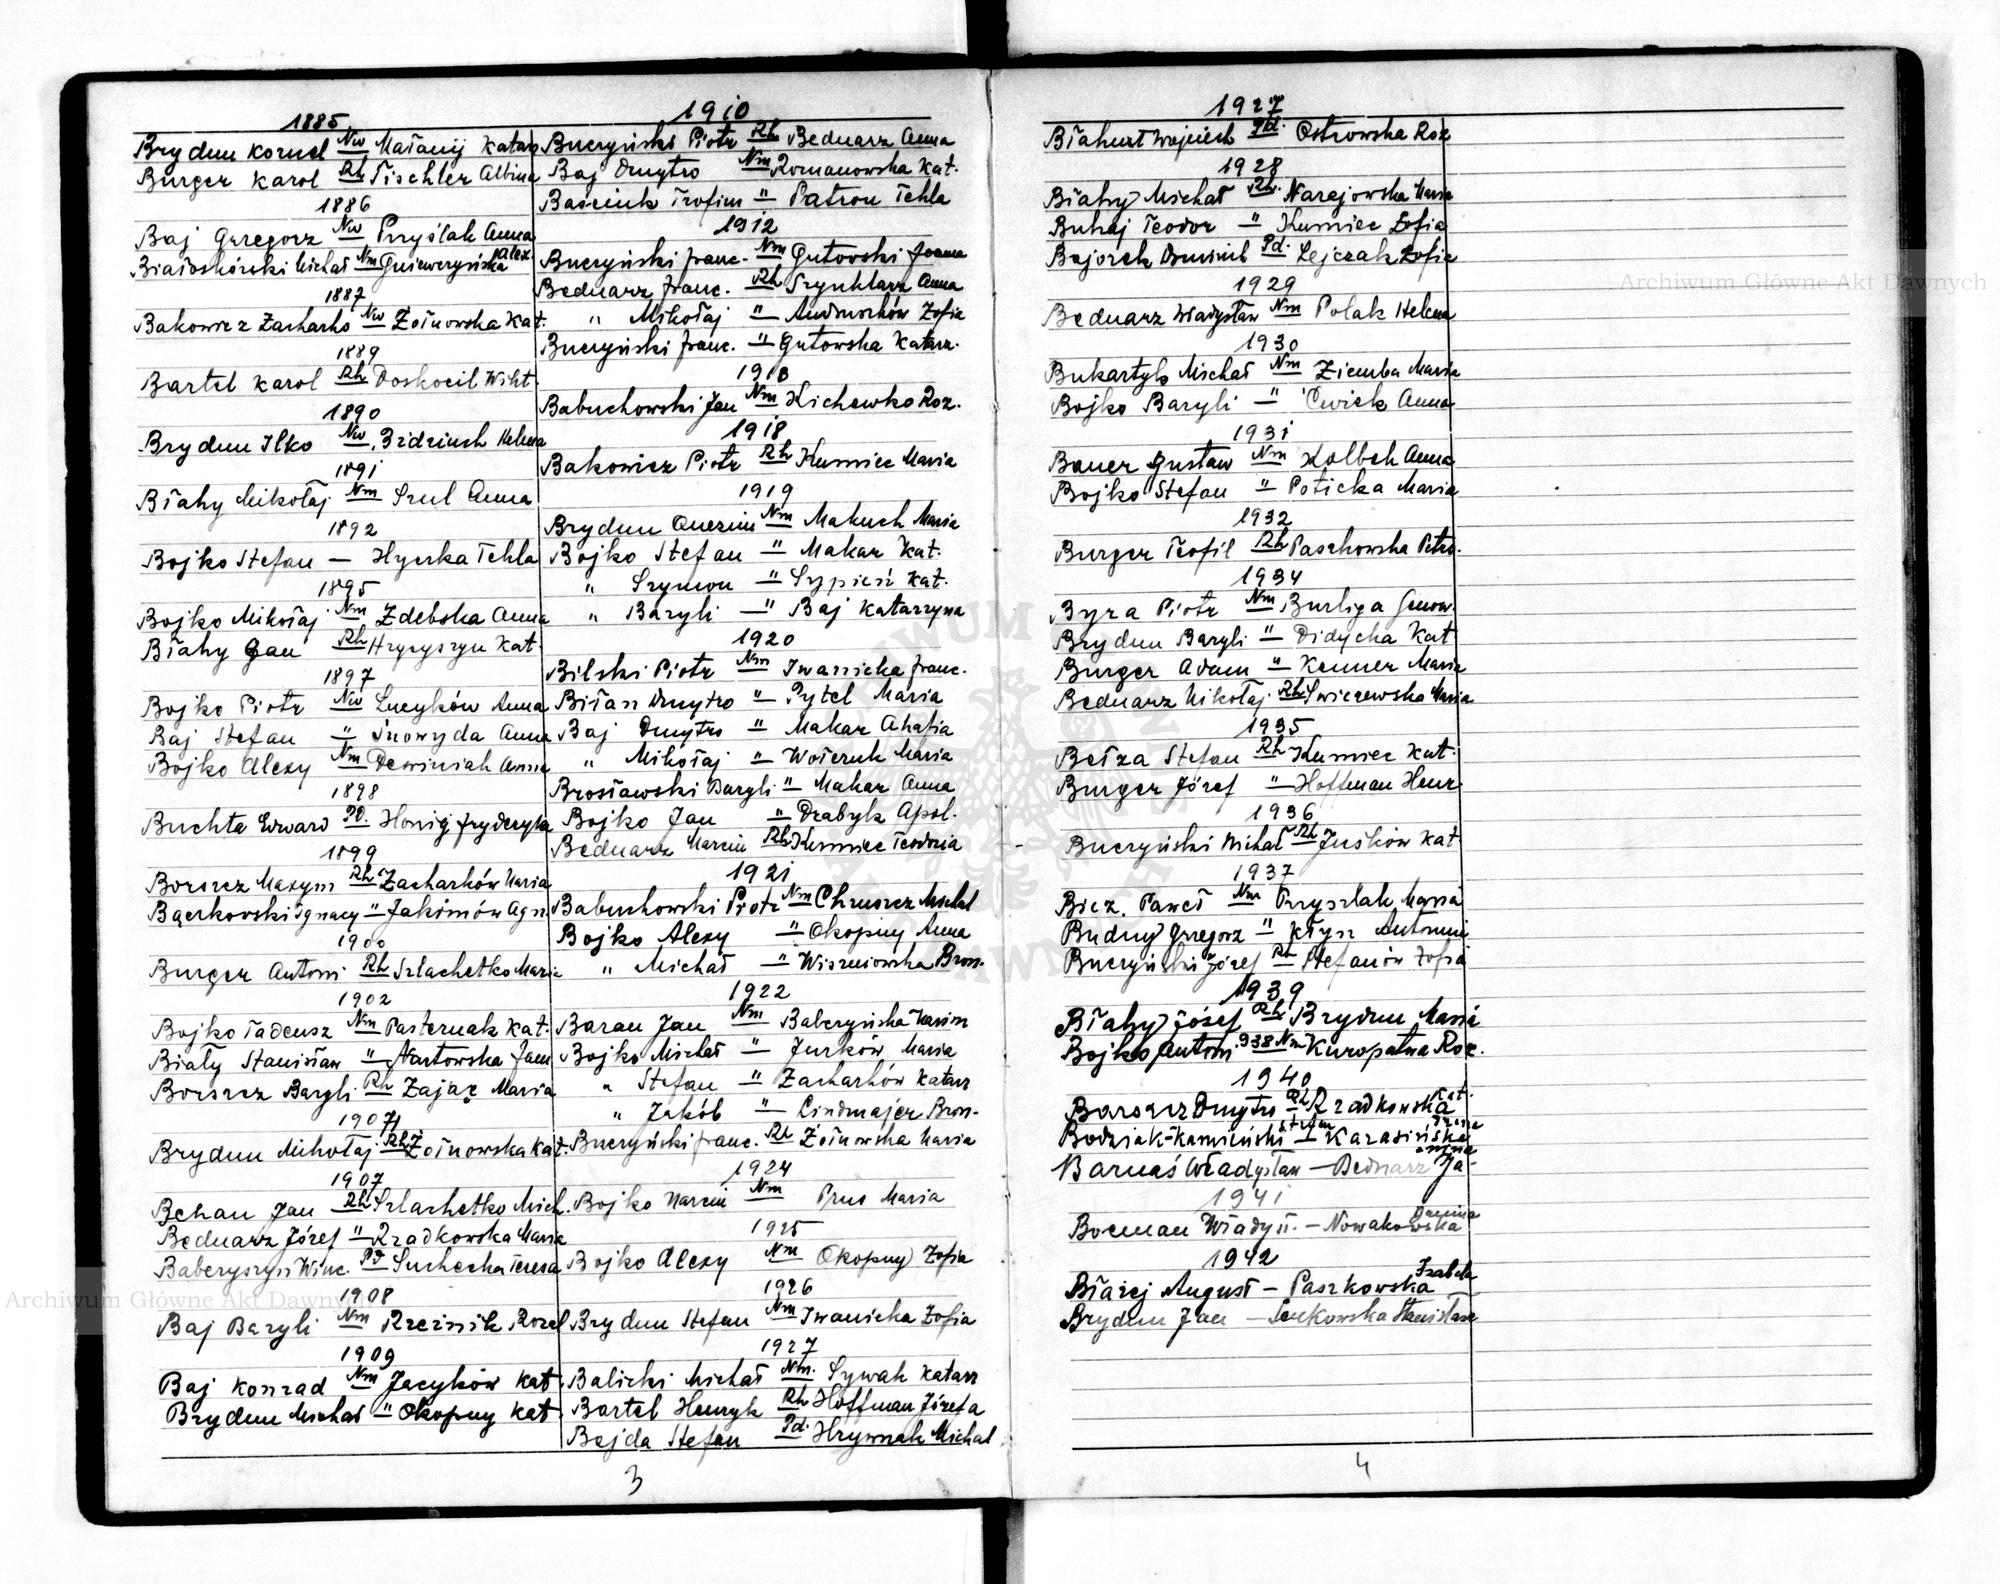 1885
Brydun Kornel Nw Małanij Katarz
Burger Karol Rh Tischler Albina
1886
Baj Grzegorz Nw Pryślak Anna
Białoskórski Michał Nm Gniewczyńska Alex
1887
Bakowicz Zacharko Nw Żołnowska Kat.
1889
Bartel Karol Rh Doskocil Wikt.
1890
Brydun Ilko Nw Bidziuch Helena
1891
Błahy Mikołaj Nm Szul Anna
1892
Bojko Stefan — Hycrka Tekla
1895
Bojko Mikołaj Nm Zdebska Anna
Błahy Jan Rh Hrycyszyn Kat.
1897
Bojko Piotr Nw Lucyków Anna
Baj Stefan " Snowyda Anna
Bojko Alexy Nm Dewiniak Anna
1898
Buchta Edward Pd. Honig Fryderyka
1899
Borszcz Maxym Rh Zacharków Maria
Bączkowski Ignacy " Jakimów Agn
1900
Burger Antoni Rh Szlachetko Maria
1902
Bojko Tadeusz Nm Pasternak Kat.
Biały Stanisław " Nartowska Jann
Borszcz Bazyli Rh Zając Maria
1907
Brydun Mikołaj Rh Żołnowska Kat.
1907
Bechan Jan Rh Szlachetko Mich.
Bednarz Józef " Rzadkowska Maria
Baberyszyn Winc. Pd Suchecka Teresa
1908
Baj Bazyli Nm Rzeźnik Rozal
1909
Baj Konrad Nm Jacyków Kat.
Brydun Michał " Okopny Kat.
1910
Buczyński Piotr Rh Bednarz Anna
Baj Dmytro Nm Romanowska Kat.
Basciuk Trofim " Patron Tekla
1912
Buczyński Franc. Nm Gutowski Joanna
Bednarz Franc. Rh Szynklarz Anna
" Mikołaj " Andruchów Zofia
Buczyński Franc. " Gutowska Katarz.
1913
Babuchowski Jan Nm Kichewko Roz.
1918
Bakowicz Piotr Rh Kumiec Maria
1919
Brydun Onezim Nm Makuch Maria
Bojko Stefan " Makar Kat.
" Szymon " Szypieść Kat.
" Bazyli " Baj Katarzyna
1920
Bilski Piotr Nm Iwanicka Franc.
Biłan Dmytro " Pytel Maria
Baj Dmytro " Makar Ahafia
" Mikołaj " Wołczuk Maria
Brosławski Bazyli " Makar Anna
Bojko Jan " Drabyk Apol.
Bednarz Marcin Rh Kumiec Teodozia
1921
Babuchowski Piotr Nm Chruszcz Michal
Bojko Alexy " Okopny Anna
" Michał " Wiszniowska Bron.
1922
Baran Jan Nm Baberyńska Karim
Bojko Michał " Jurków Maria
" Stefan " Zacharków Katarz
" Jakób " Lindmajer Bron.
Buczyński Franc. Rh Żołnowska Maria
1924
Bojko Marcin Nm Prus Maria
1925
Bojko Alexy Nm Okopny Zofia
1926
Brydun Stefan Nm Iwanicka Zofia
1927
Balicki Michał Nm. Sywak Katarz
Bartel Henryk Rh Hoffman Józefa
Bejda Stefan Pd. Hrywnak Michal
3
1927
Błahut Wojciech Pd. Ostrowska Roz
1928
Błahy Michał Rh. Narajowska Maria
Buhaj Teodor " Kumiec Zofia
Bajorek Dominik Pd. Lejczak Zofia
1929
Bednarz Władysław Nm Polak Helena
1930
Bukartyk Michał Nm Ziemba Maria
Bojko Bazyli " Ćwiek Anna
1931
Bauer Gustaw Nm Kolbeh Anna
Bojko Stefan " Poticka Maria
1932
Burger Teofil Rh Paszkowska Petro.
1934
Byra Piotr Nm Burliga Genow.
Brydun Bazyli " Didycha Kat
Burger Adam " Kenner Maria
Bednarz Mikołaj Rh Swiczewska Maria
1935
Bełza Stefan Rh Kumiec Kat.
Burger Józef " Hoffman Henr
1936
Buczyński Michał Rh Juśków Kat
1937
Bicz. Paweł Nm Pryszlak Maria
Budny Grzegorz " Kłysz Antonina
Buczyński Józef Rh Stefanów Zofia
1939
Błahy Józef Rh Brydun Maria
Bojko Antoni 938 Nm Kuropatwa Roz.
1940
Borszcz Dmytro Rh Rzadkowska Kat.
Bodziak-Kamiński Stefan — Karasińska Irena
Barnaś Władysław — Bednarz Janina
1941
Bocman Władysł. — Nowakowska Janina
1942
Błażej August — Paszkowska Izabela
Brydun Jan — Senkowska Stanisława
4
Archiwum Główne Akt Dawnych
Archiwum Główne Akt Dawnych